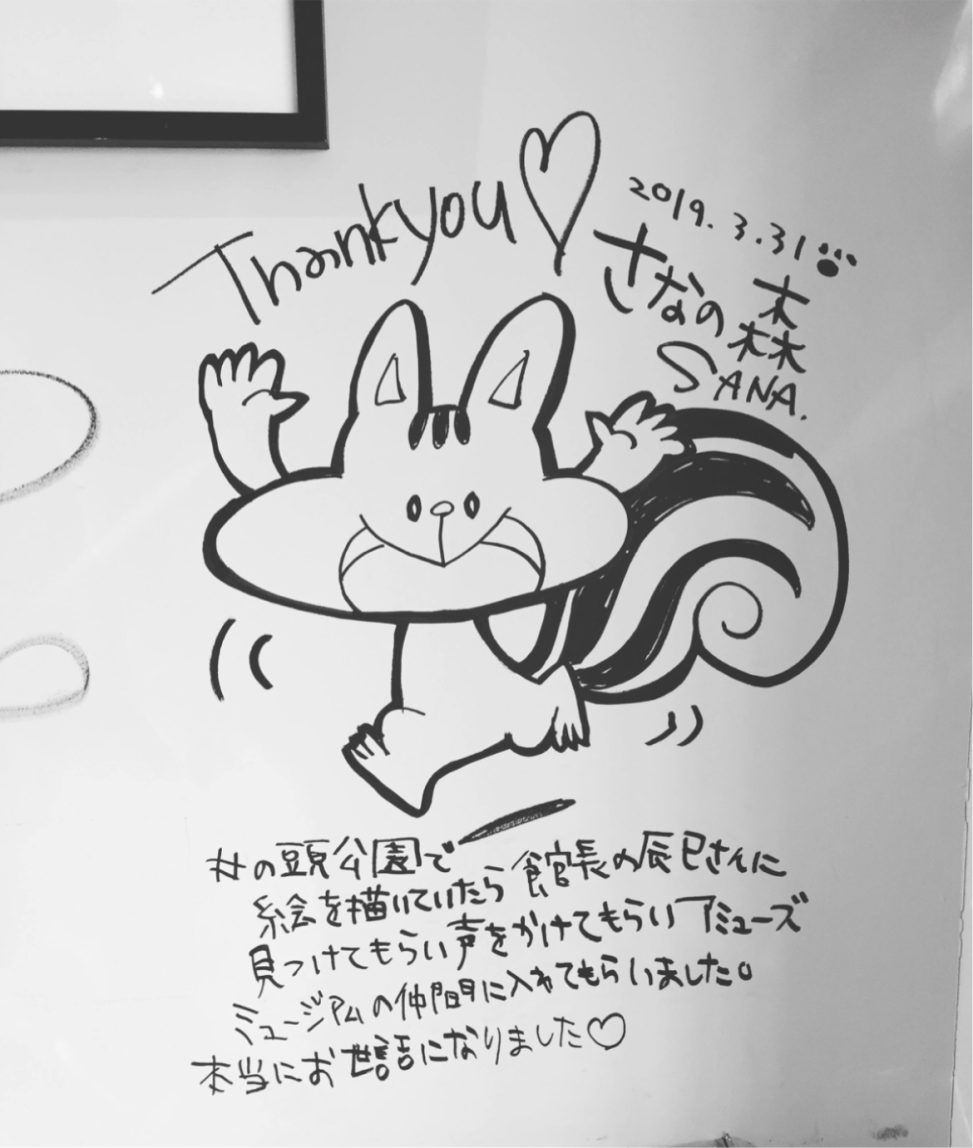 Thank you♡
2019.3.31
さなの森
SANA.
井の頭公園で
絵を描いていたら館長の辰巳さんに
見つけてもらい声をかけてもらいアミューズ
ミュージアムの仲間に入れてもらいました。
本当にお世話になりました♡